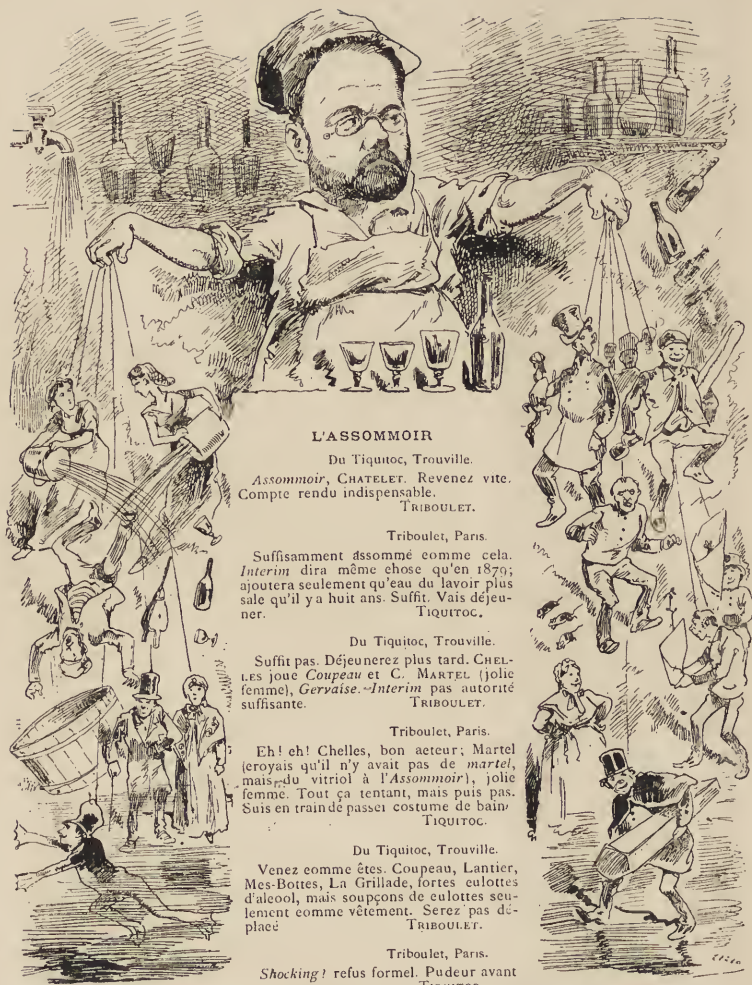 L'ASSOMMOIR
Du Tiquitoc, Trouville.
Assommoir, CHATELET. Revenez vite.
Compte rendu indispensable.
TRIBOULET.
Triboulet, Paris.
Suffisamment assommé comme cela.
Interim dira même chose qu'en 1879;
ajoutera seulement qu'eau du lavoir plus
sale qu'il y a huit ans. Suffit. Vais déjeu-
ner. TIQUITOC.
Du Tiquitoc, Trouville.
Suffit pas. Déjeunerez plus tard. CHEL-
LES joue Coupeau et C. MARTEL (jolie
femme), Gervaise. Interim pas autorité
suffisante. TRIBOULET.
Triboulet, Paris.
Eh! eh! Chelles, bon acteur; Martel
(croyais qu'il n'y avait pas de martel,
mais du vitriol à l'Assommoir), jolie
femme. Tout ça tentant, mais puis pas.
Suis en train de passer costume de bain
TIQUITOC.
Du Tiquitoc, Trouville.
Venez comme êtes. Coupeau, Lantier,
Mes-Bottes, La Grillade, fortes culottes
d'alcool, mais soupçons de culottes seu-
lement comme vêtement. Serez pas dé-
placé TRIBOULET.
Triboulet, Paris.
Shocking! refus formel. Pudeur avant